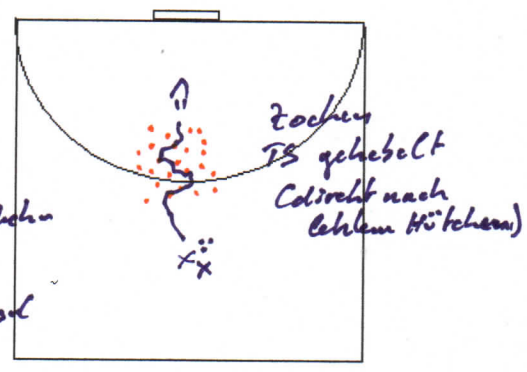 Zocken
TS gehebelt
(direkt nach
letztem Hütchen)